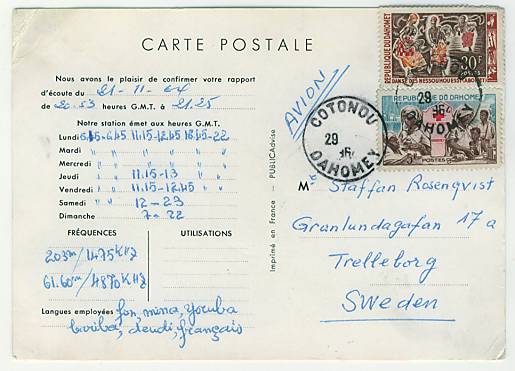 CARTE POSTALE
Nous avons le plaisir de confirmer votre rapport
d'écoute du 21-11-64
de 20.53 heures G.M.T. à 21.25
Notre station émet aux heures G.M.T.
Lundi 11.15-12.45 18.45-22
Mardi " " "
Mercredi " " "
Jeudi " 11.15-13 "
Vendredi " 11.15-12.45 "
Samedi " 12-23
Dimanche 7-22
FRÉQUENCES UTILISATIONS
203m/1475KHZ
61.60m/4870KHZ
Langues employées fon, mina, yoruba
bariba, dendi, français
Imprimé en France - PUBLICAdvise
AVION
REPUBLIQUE DU DAHOMEY
30F
DANSE DES NESSOUHOUESSI-ABOMEY
REPUBLIQUE DU DAHOMEY
POSTES
COTONOU
29
DAHOMEY
29
DAHOMEY
M Staffan Rosenqvist
Granlundagatan 17a
Trelleborg
Sweden